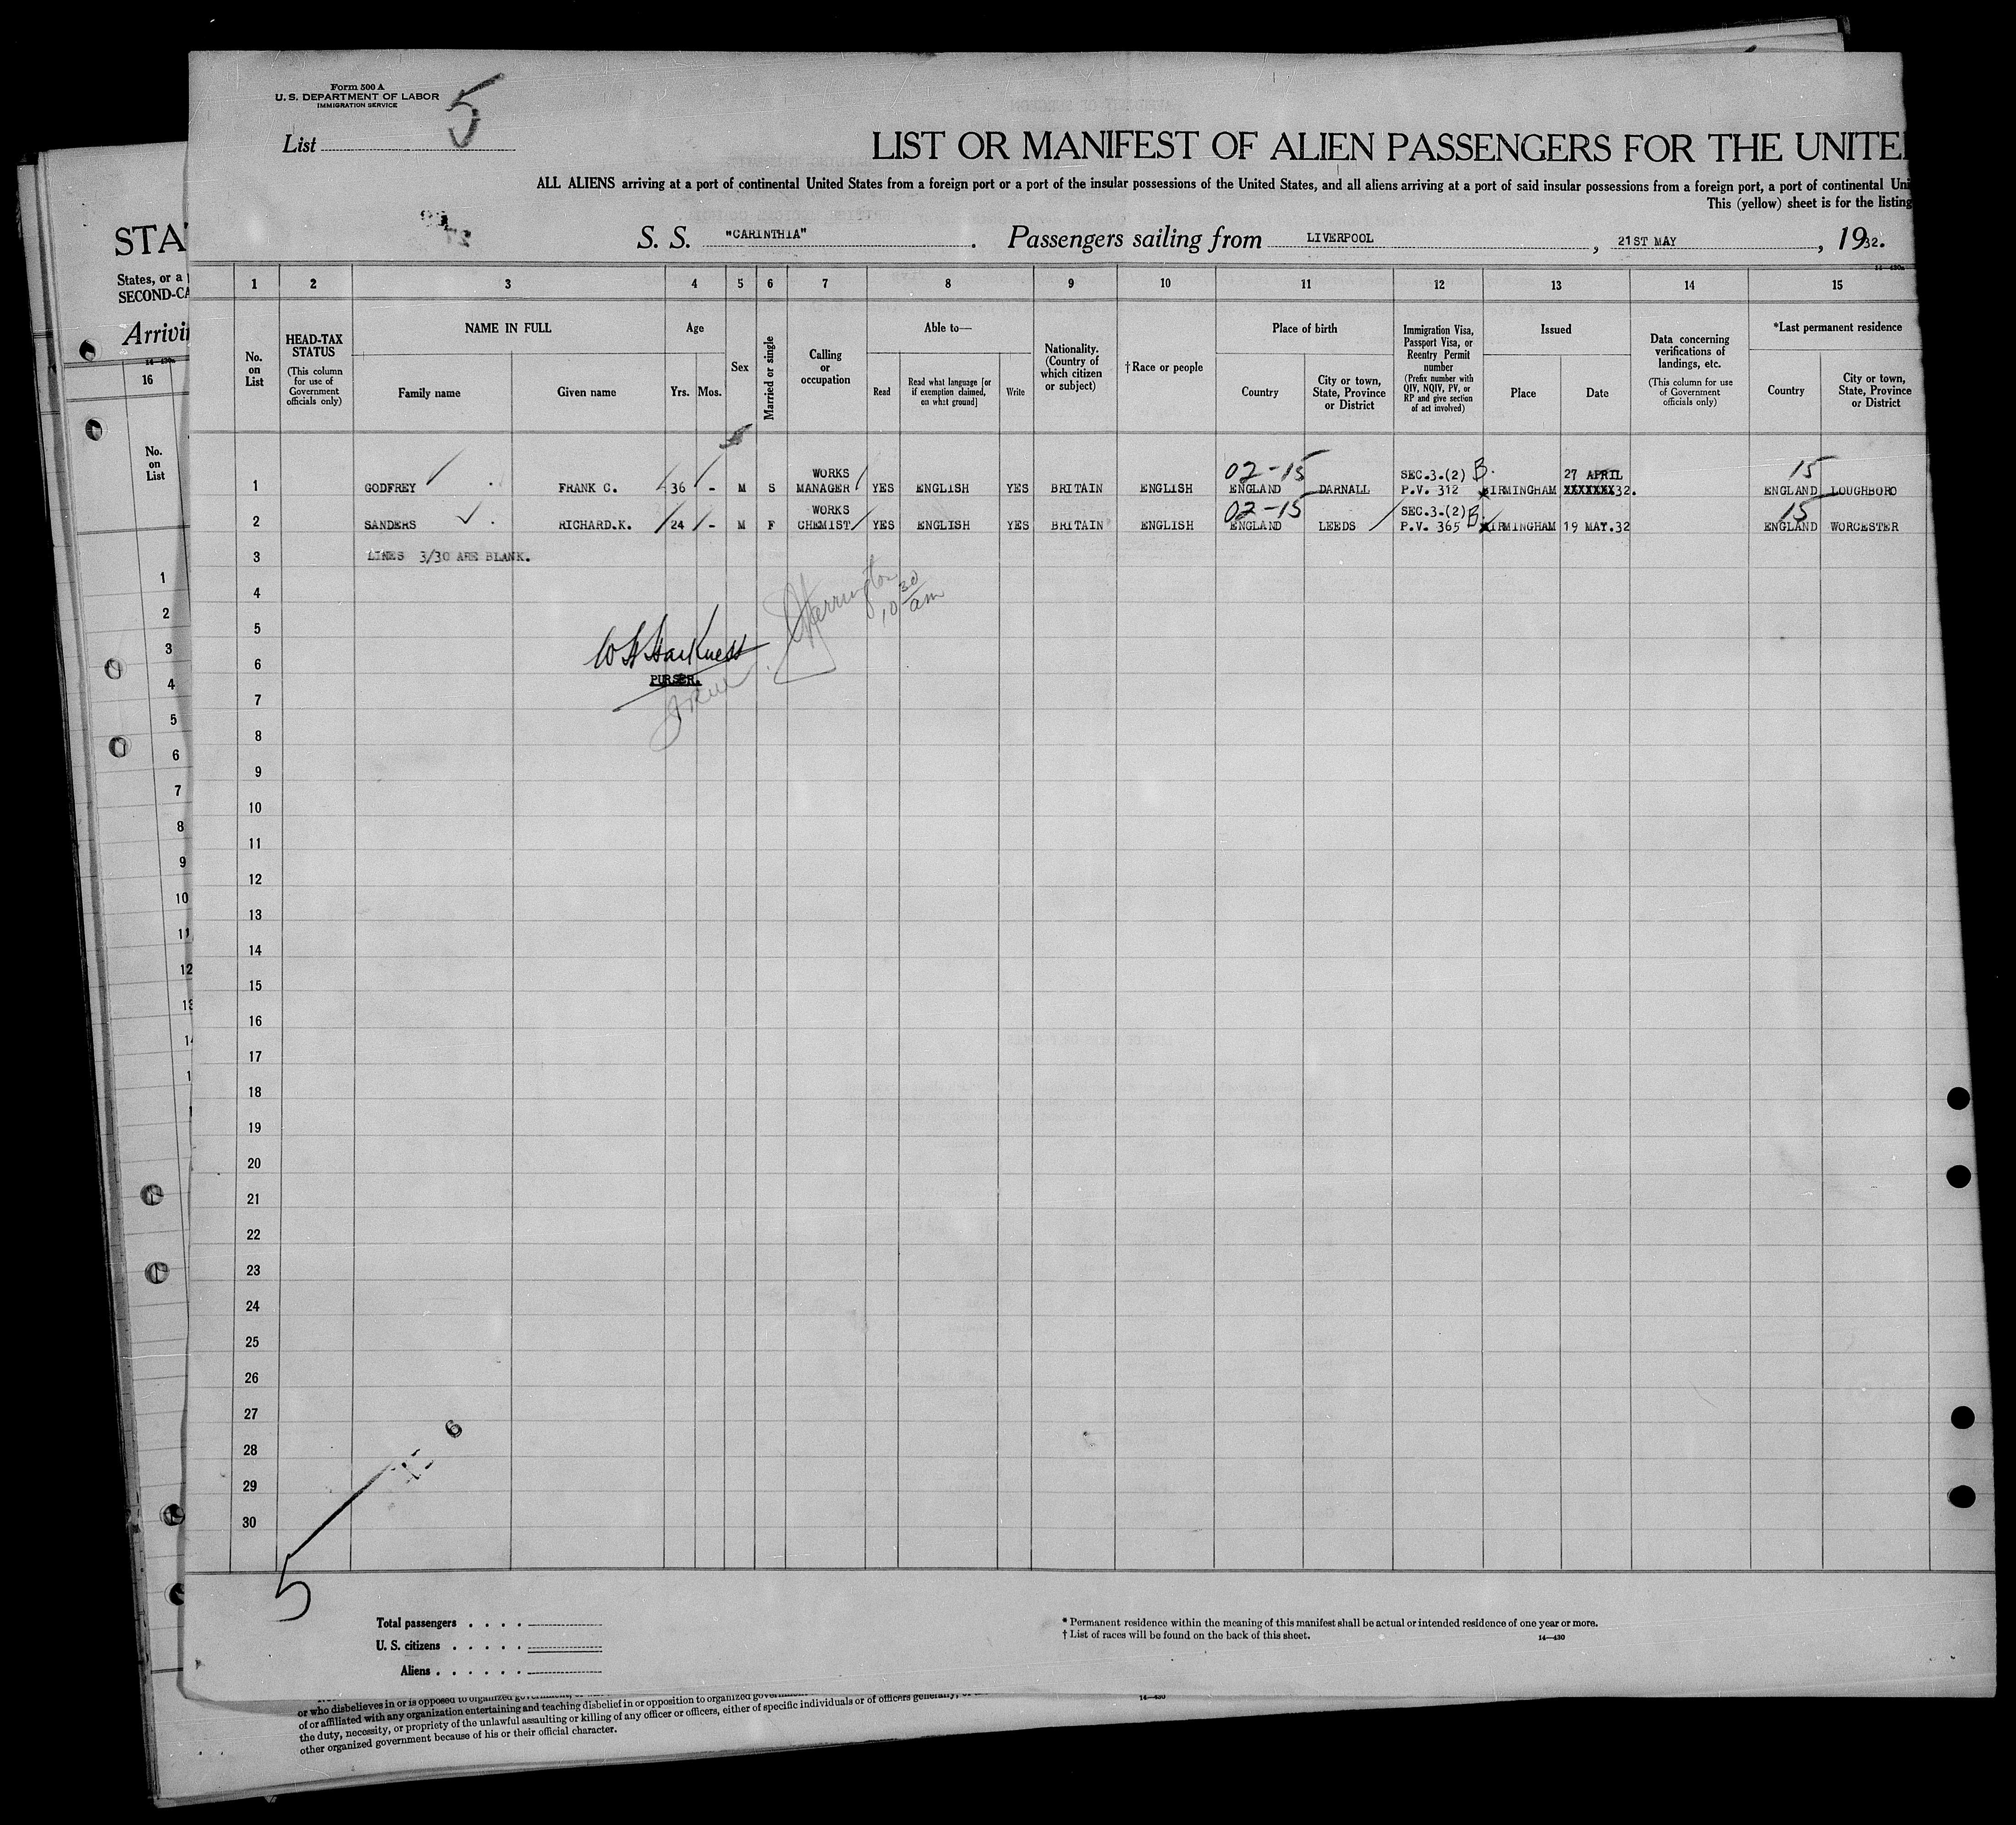 Form 500 A
U. S. DEPARTMENT OF LABOR
IMMIGRATION SERVICE
List 5
LIST OR MANIFEST OF ALIEN PASSENGERS FOR THE UNITE
ALL ALIENS arriving at a port of continental United States from a foreign port or a port of the insular possessions of the United States, and all aliens arriving at a port of said insular possessions from a foreign port, a port of continental Uni
This (yellow) sheet is for the listing
S. S. "CARINTHIA". Passengers sailing from LIVERPOOL, 21ST MAY, 1932.
14—430a
1 2 3 4 5 6 7 8 9 10 11 12 13 14 15
No. on List
HEAD-TAX STATUS
(This column for use of Government officials only)
NAME IN FULL
Family name
Given name
Age
Yrs. Mos.
Sex
Married or single
Calling or occupation
Able to—
Read
Read what language [or if exemption claimed, on what ground]
Write
Nationality. (Country of which citizen or subject)
†Race or people
Place of birth
Country
City or town, State, Province or District
Immigration Visa, Passport Visa, or Reentry Permit number
(Prefix number with QIV, NQIV, PV, or RP and give section of act involved)
Issued
Place
Date
Data concerning verifications of landings, etc.
(This column for use of Government officials only)
*Last permanent residence
Country
City or town, State, Province or District
WORKS 02-15 SEC.3.(2) B. 27 APRIL 15
1 GODFREY FRANK C. 36 - M S MANAGER YES ENGLISH YES BRITAIN ENGLISH ENGLAND DARNALL P.V. 312 BIRMINGHAM XXXXXXX32. ENGLAND LOUGHBORO
WORKS 02-15 SEC.3.(2) B. 15
2 SANDERS RICHARD.K. 24 - M F CHEMIST YES ENGLISH YES BRITAIN ENGLISH ENGLAND LEEDS P.V. 365 BIRMINGHAM 19 MAY.32 ENGLAND WORCESTER
3 LINES 3/30 ARE BLANK.
4
Harrington
10 30 am
5
W Harkness
6
PURSER.
7
8
9
10
11
12
13
14
15
16
17
18
19
20
21
22
23
24
25
26
27
6
28
29
30
5
Total passengers . . . .
U. S. citizens . . . . .
Aliens . . . . . .
* Permanent residence within the meaning of this manifest shall be actual or intended residence of one year or more.
† List of races will be found on the back of this sheet.
14—430
STA
States, or a
SECOND-CA
Arrivi
14—430a
16
No. on List
1
2
3
4
5
6
7
8
9
10
11
12
or who disbelieves in or is opposed to organized
of or affiliated with any organization entertaining and teaching disbelief in or opposition to organized
the duty, necessity, or propriety of the unlawful assaulting or killing of any officer or officers, either of specific individuals or of officers generally,
other organized government because of his or their official character.
14—430